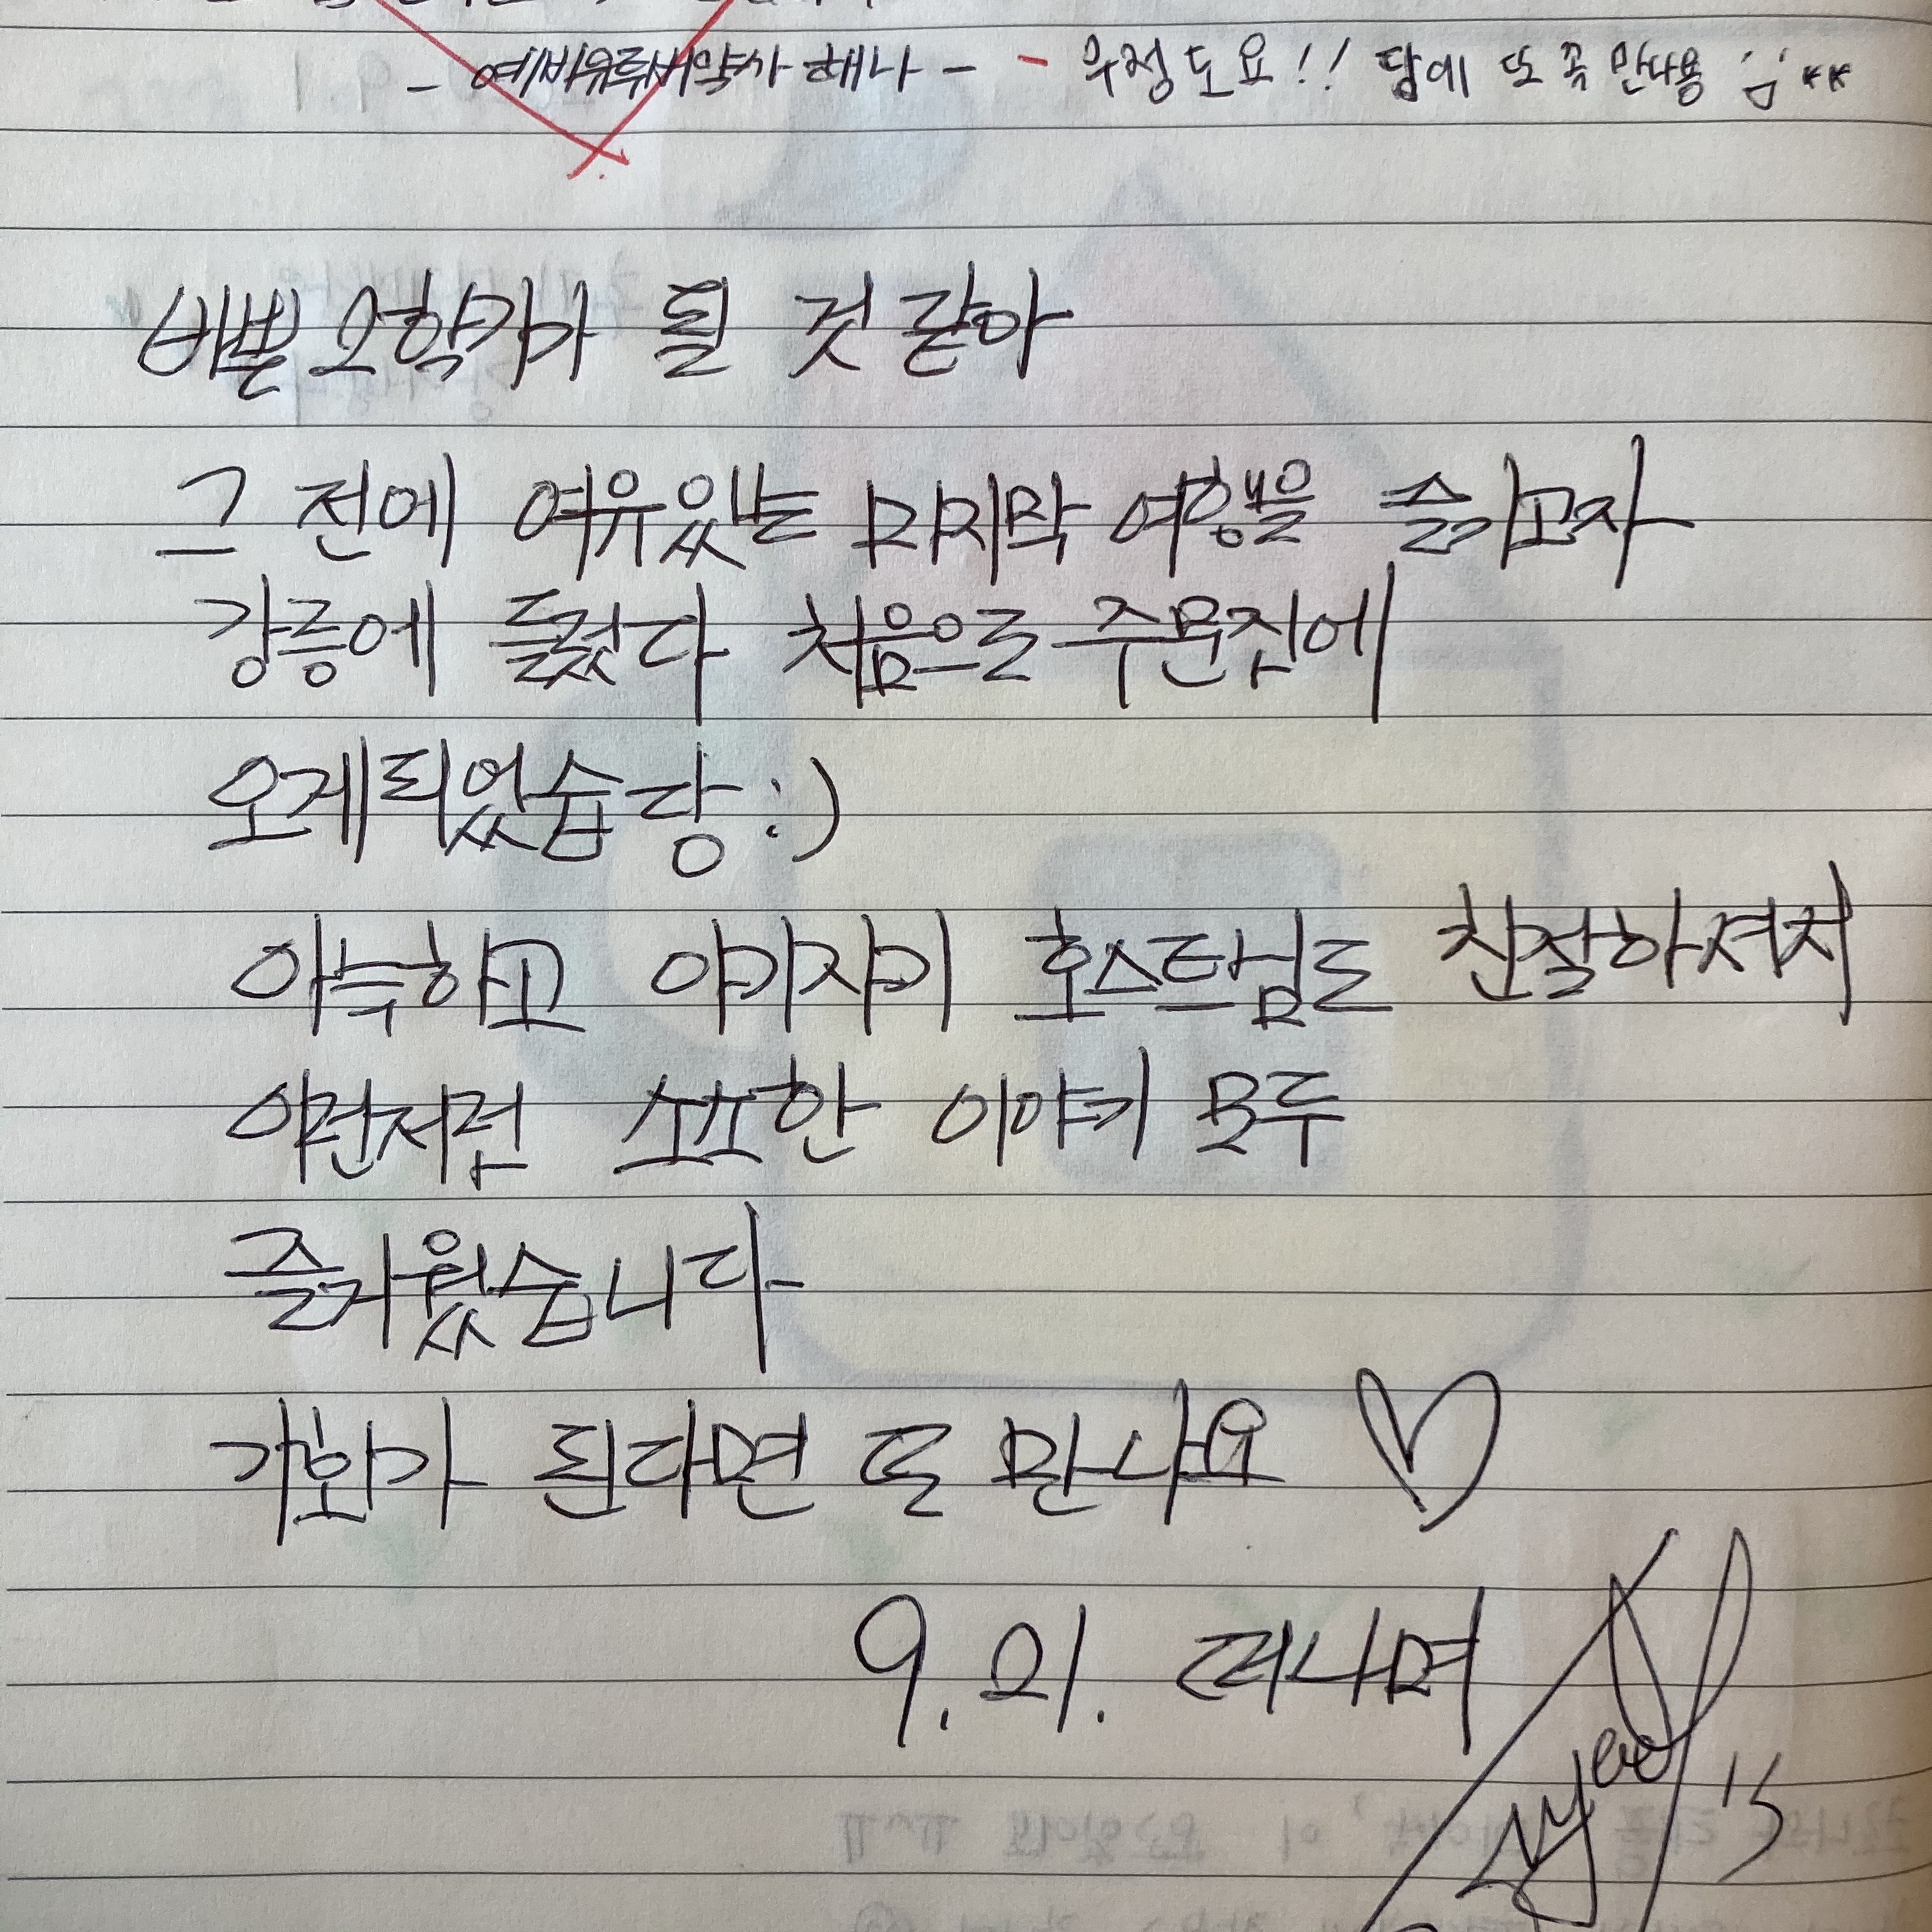 우정도요!! 담에 또 꼭 만나용 :;**
바쁜 2학기가 될 것 같아
그 전에 여유있는 마지막 여행을 즐기고자
강릉에 들렀다 처음으로 주문진에
오게되었습당 :)
아늑하고 아기자기 호스트님도 친절하셔서
이런저런 소소한 이야기 모두
즐거웠습니다
기회가 된다면 또 만나요 ♡
9. 21. 떠나며